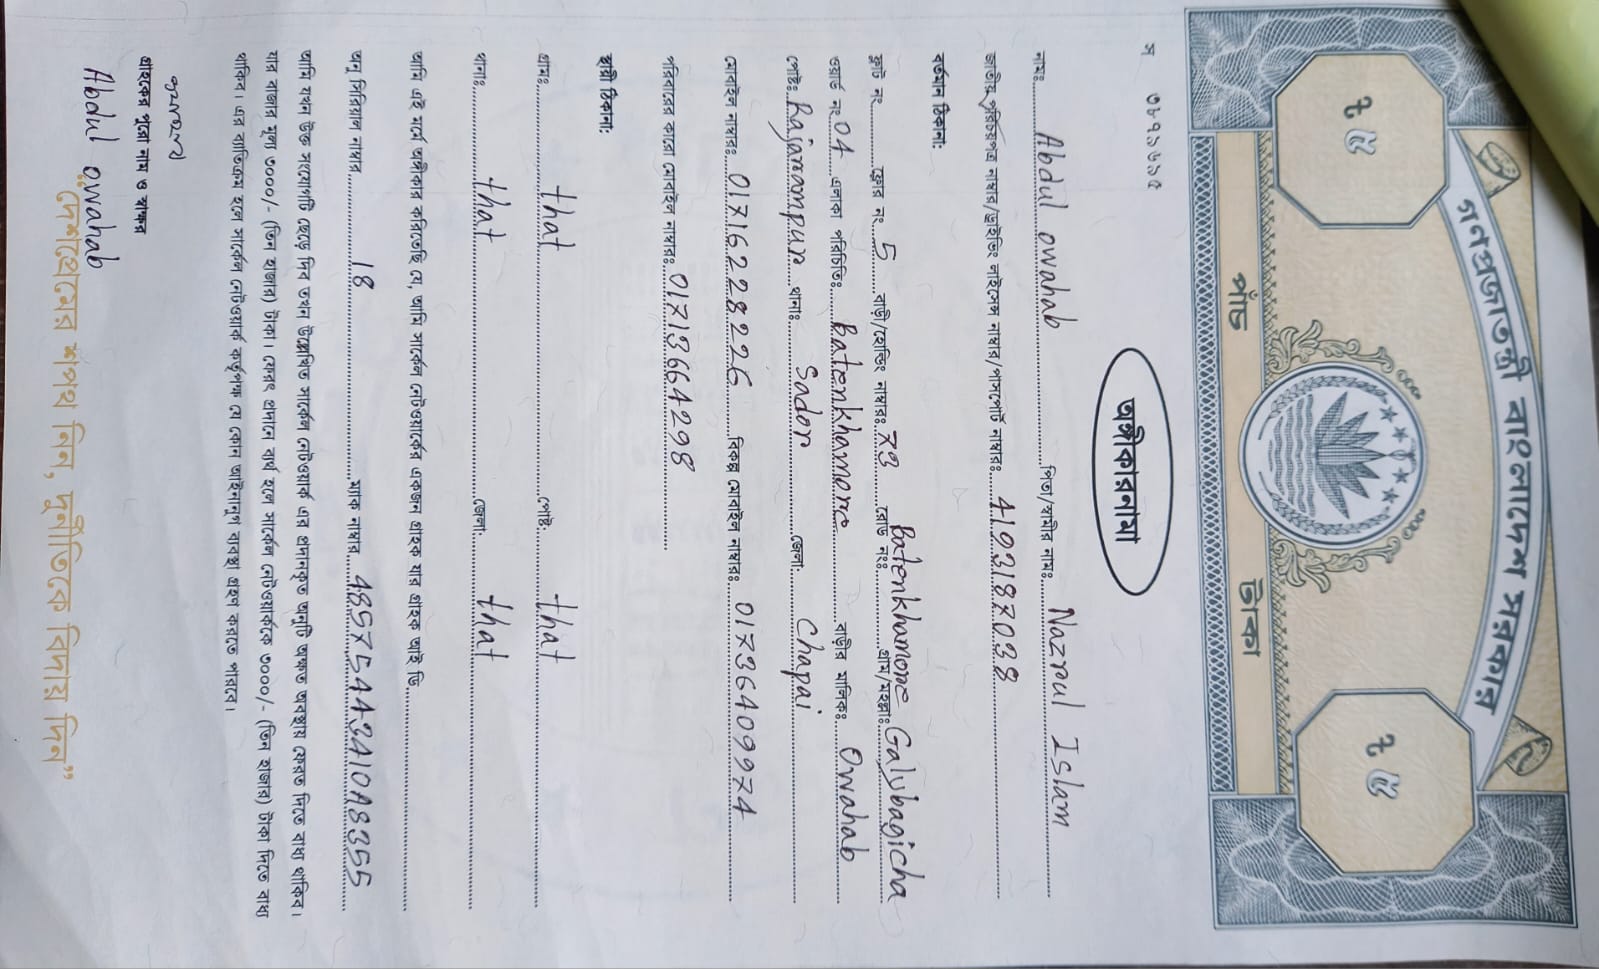 গনপ্রজাতন্ত্রী বাংলাদেশ সরকার
৳ ৫ ৳ ৫
পাঁচ টাকা
স ৩৮৭১৬১৫
অঙ্গীকারনামা
নামঃ Abdul owahab পিতা/স্বামীর নামঃ Nazrul Islam
জাতীয় পরিচয়পত্র নাম্বার/ড্রাইভিং লাইসেন্স নাম্বার/পাসপোর্ট নাম্বারঃ 4193187038
বর্তমান ঠিকানা:
ফ্লাট নং ফ্লোর নং 5 বাড়ী/হোল্ডিং নাম্বারঃ 73 রোড নংঃ Batenkhamore গ্রাম/মহল্লাঃ Galubagicha
ওয়ার্ড নং 04 এলাকা পরিচিতিঃ Batenkhamore বাড়ীর মালিকঃ Owahab
পোষ্টঃ Rajarampur থানাঃ Sador জেলা: Chapai
মোবাইল নাম্বারঃ 01716228226 বিকল্প মোবাইল নাম্বারঃ 01736409974
পরিবারের কারো মোবাইল নাম্বারঃ 01713664298
স্থায়ী ঠিকানা:
গ্রামঃ that পোষ্ট: that
থানাঃ that জেলা: that
আমি এই মর্মে অঙ্গীকার করিতেছি যে, আমি সার্কেল নেটওয়ার্কের একজন গ্রাহক যার গ্রাহক আই ডি
অনু সিরিয়াল নাম্বার 18 ম্যাক নাম্বার 48575443410A8355
আমি যখন উক্ত সংযোগটি ছেড়ে দিব তখন উল্লেখিত সার্কেল নেটওয়ার্ক এর প্রদানকৃত অনুটি অক্ষত অবস্থায় ফেরত দিতে বাধ্য থাকিব।
যার বাজার মূল্য ৩০০০/- (তিন হাজার) টাকা। ফেরৎ প্রদানে ব্যর্থ হলে সার্কেল নেটওয়ার্ককে ৩০০০/- (তিন হাজার) টাকা দিতে বাধ্য
থাকিব। এর ব্যাতিক্রম হলে সার্কেল নেটওয়ার্ক কর্তৃপক্ষ যে কোন আইনানুগ ব্যবস্থা গ্রহণ করতে পারবে।
গ্রাহকের পুরো নাম ও স্বাক্ষর
Abdul owahab
“দেশপ্রেমের শপথ নিন, দুর্নীতিকে বিদায় দিন”